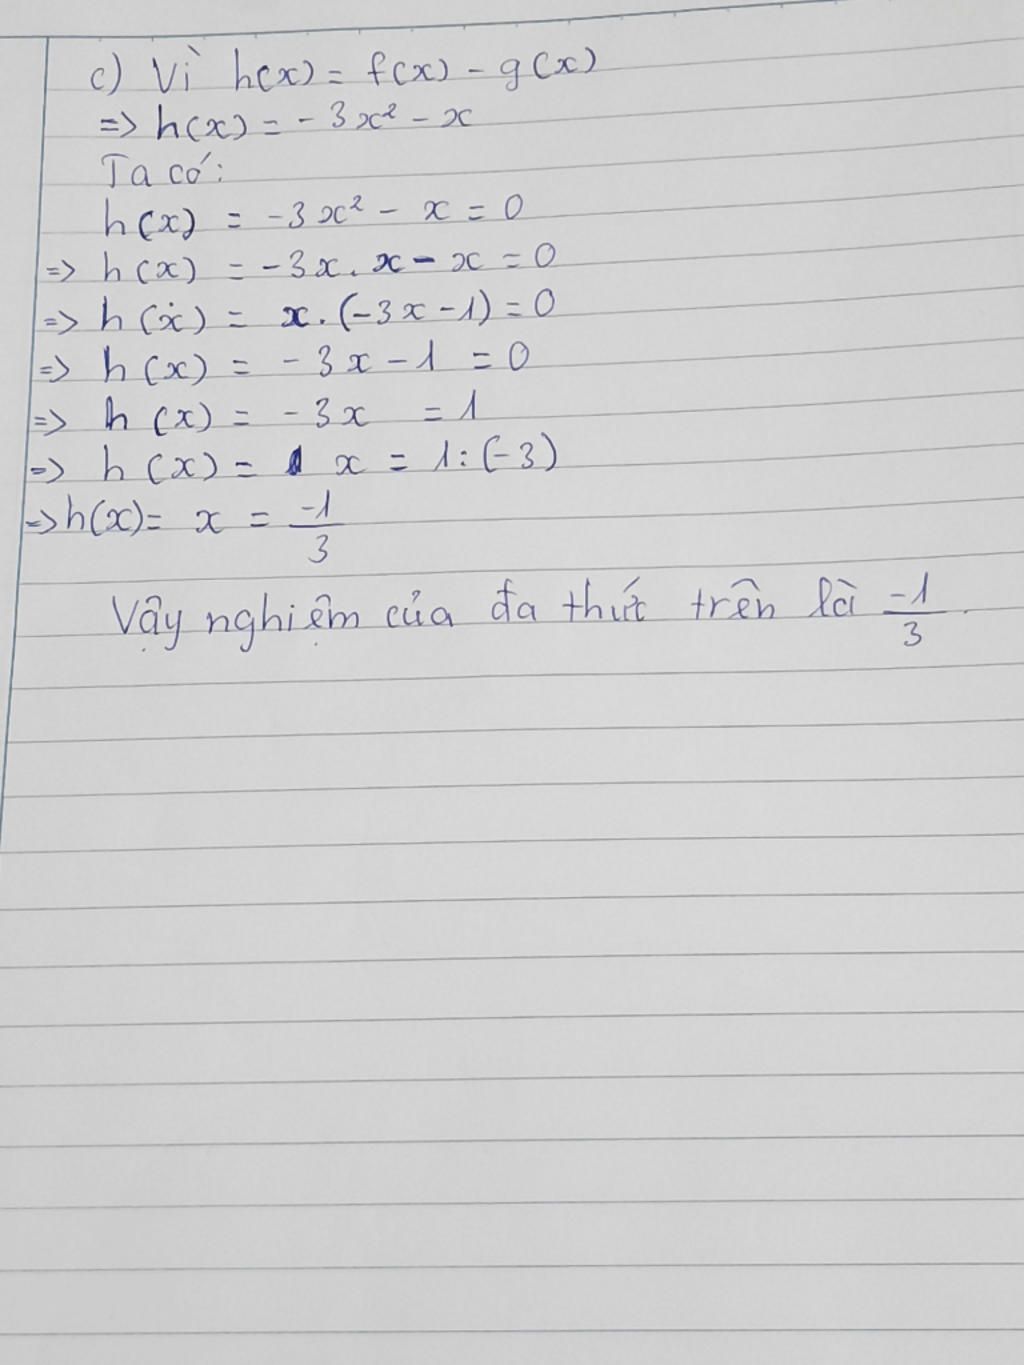 c) Vì h(x) = f(x) - g(x)
=> h(x) = - 3x² - x
Ta có:
h(x) = -3x² - x = 0
=> h(x) = -3x . x - x = 0
=> h(x) = x . (-3x - 1) = 0
=> h(x) = - 3x - 1 = 0
=> h(x) = - 3x = 1
=> h(x) = x = 1 : (-3)
=> h(x) = x = -1/3
Vậy nghiệm của đa thức trên là -1/3.